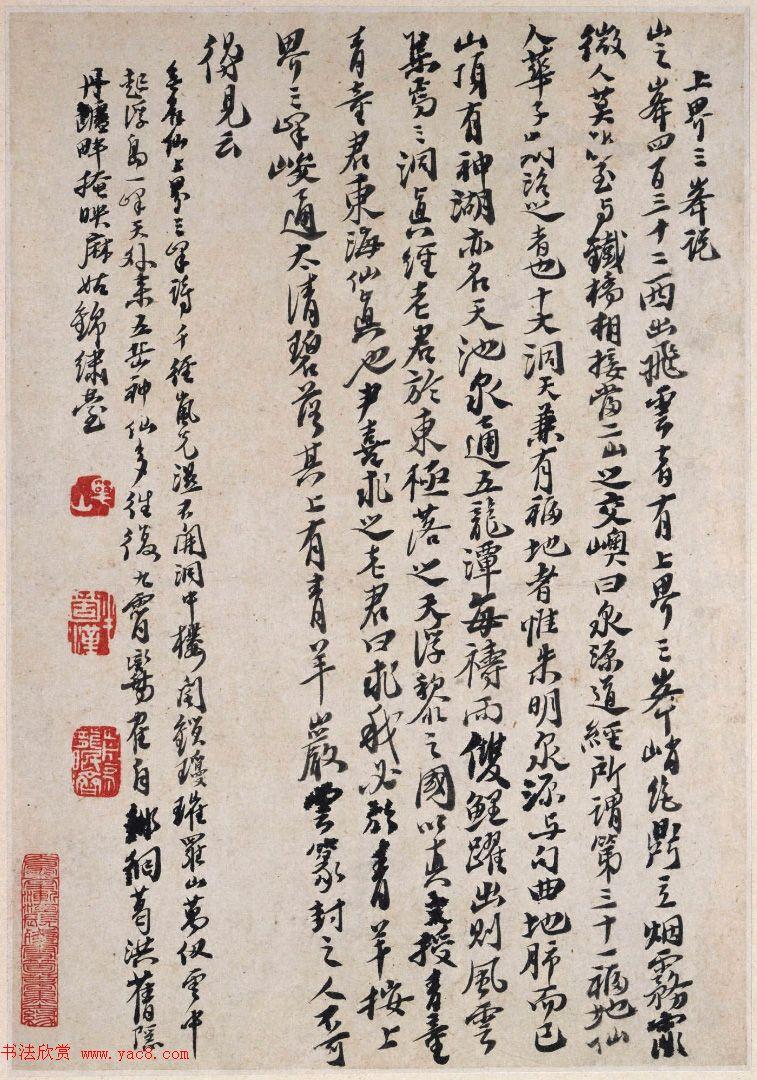 上界三峯說
山之峯四百三十二西出飛雲者有上界三峯峭絕鼎立烟霧霏
微人莫能至与鐵橋相接當二山之交嶼曰泉源道經所謂第三十一福地仙
人華子期治之者也十大洞天兼有福地者惟朱明泉源与句曲地肺而已
山頂有神湖亦名天池泉通五龍潭每禱雨雙鯉躍出則風雲
集焉三洞真經老君於東極落之天浮黎之國以真文授青童
青童君東海仙真也尹喜求之老君曰求我必於青羊按上
界三峰峻通太清碧落其上有青羊巖雲篆封之人不可
得見云
仙上界三峰詩千徑嵐光濕不開洞中樓閣鎖瓊瑰羅山萬仞雲中
起浮島一峰天外來五岳神仙多往復九霄鸞雀自葛洪舊隱
丹爐畔掩映麻姑錦繡臺
书法欣赏 www.yac8.com